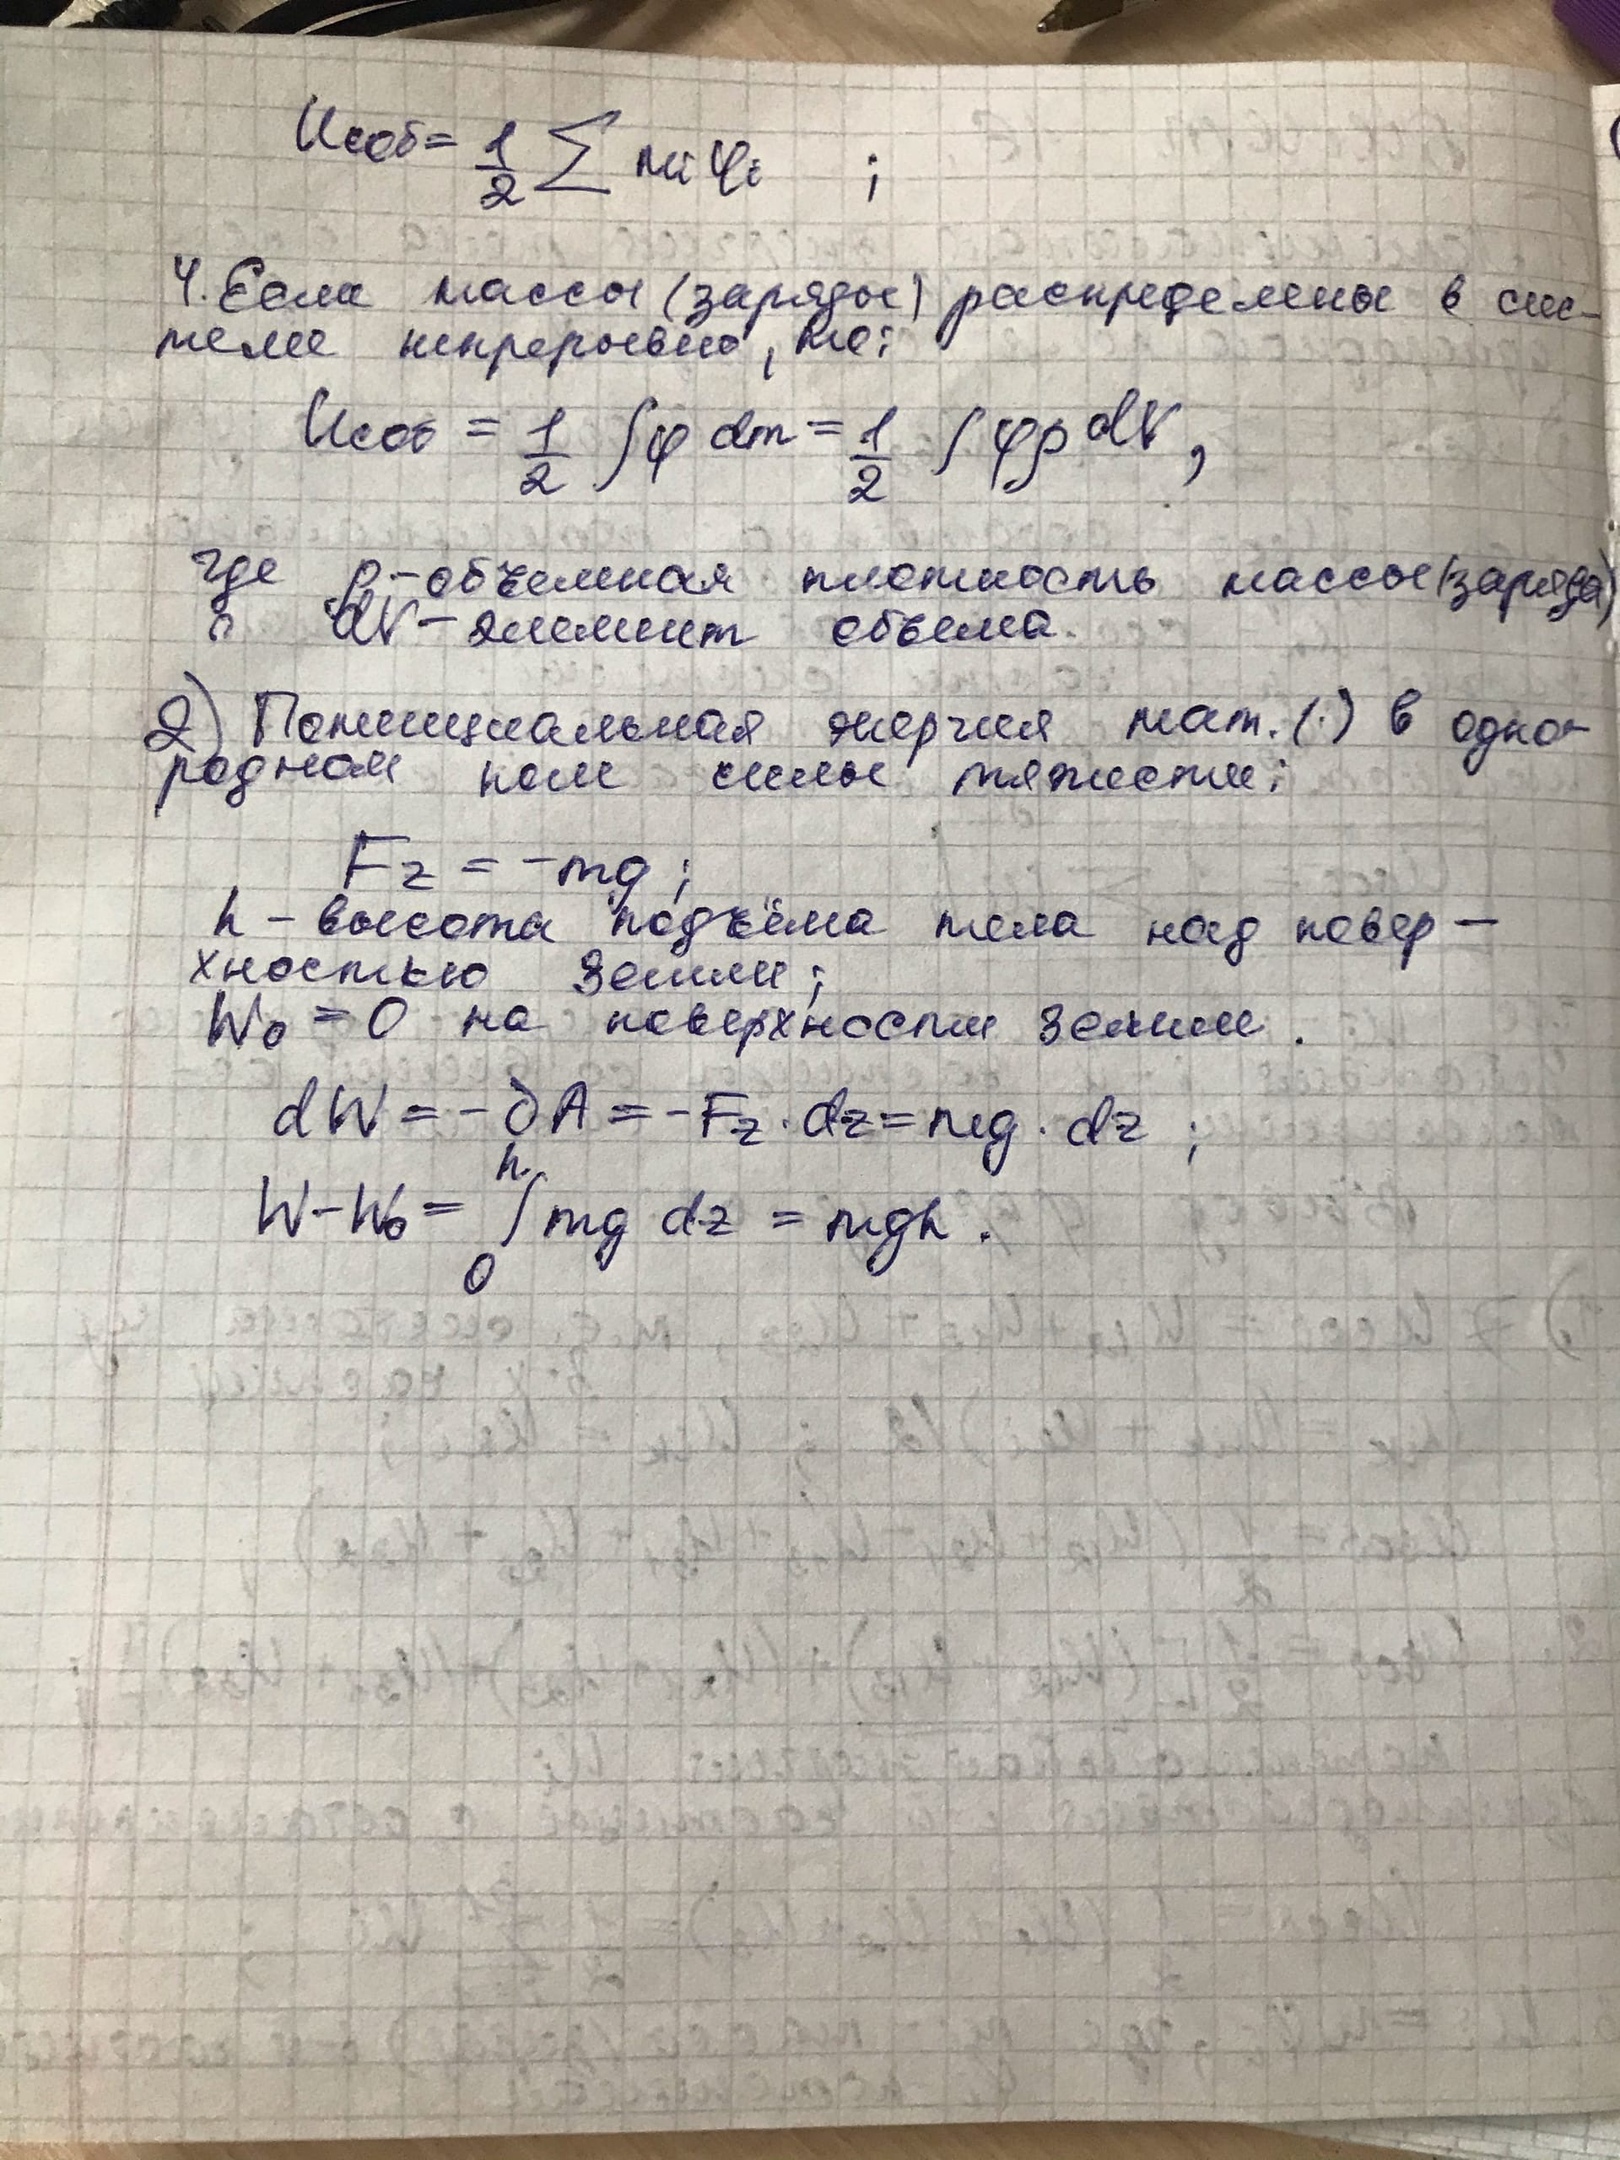 Uсоб = 1/2 ∑ mi φi ;
4. Если массы (заряды) распределены в сис-
теме непрерывно, то:
Uсоб = 1/2 ∫φ dm = 1/2 ∫φρ dV,
где ρ – объемная плотность массы (заряда)
dV – элемент объема.
2) Потенциальная энергия мат. (·) в одно-
родном поле силы тяжести:
Fz = -mg ;
h – высота подъёма тела над повер-
хностью Земли;
W₀ = 0 на поверхности Земли.
dW = -∂A = -Fz · dz = mg · dz ;
W - W₀ = ∫₀ʰ mg dz = mgh.